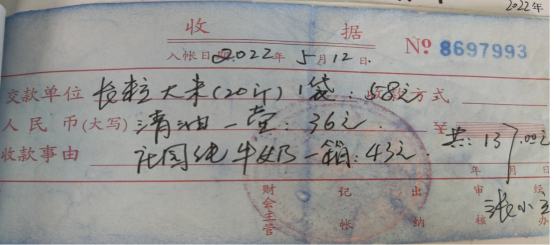 2022年
收 据
入帐日期2022年5月12日
№ 8697993
交款单位 长粒大米(20斤)1袋:58元 方式
人民币(大写) 清油一壶:36元 ¥ 共:137.00元
收款事由 庄园纯牛奶一箱:43元 年 月 日
财会主管 记帐 出纳 审核 经办 张小